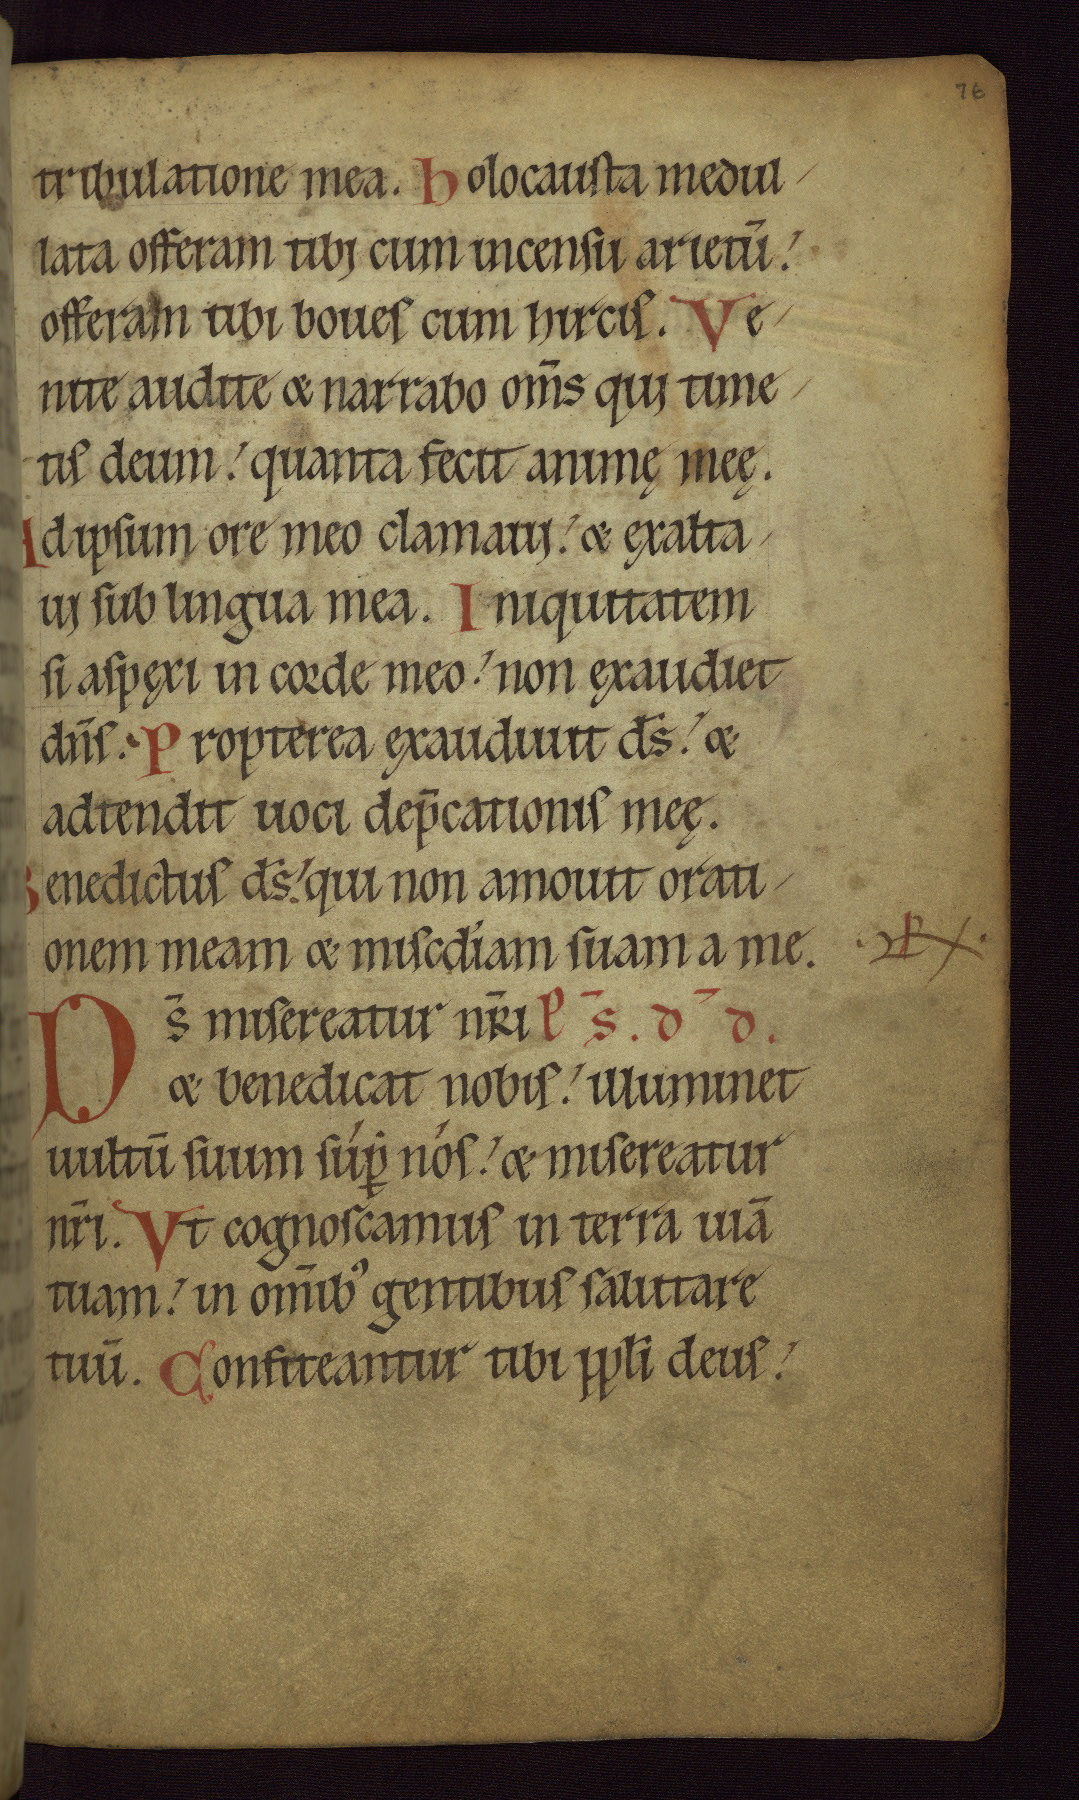 76
tribulatione mea. Holocausta medul-
lata offeram tibj cum incensu arietū:
offeram tibi boues cum hircis. Ve-
nite audite & narrabo om̄s quj time-
tis deum: quanta fecit animę meę.
Ad ipsum ore meo clamauj: & exalta-
uj sub lingua mea. Iniquitatem
si aspęxi in corde meo: non exaudiet
dn̄s. Propterea exaudiuit d̄s: &
adtendit uoci dep̄cationis meę.
Benedictus d̄s: qui non amouit orati-
onem meam & misc̄diam suam a me.
Ds̄ misereatur nr̄i P̄s. d̄ d.
& benedicat nobis: illuminet
uultū suum sup̱ nos: & misereatur
nr̄i. Vt cognoscamus in terra uiā
tuam: in om̄ib' gentibus salutare
tuū. Confiteantur tibi ppl̄i deus: